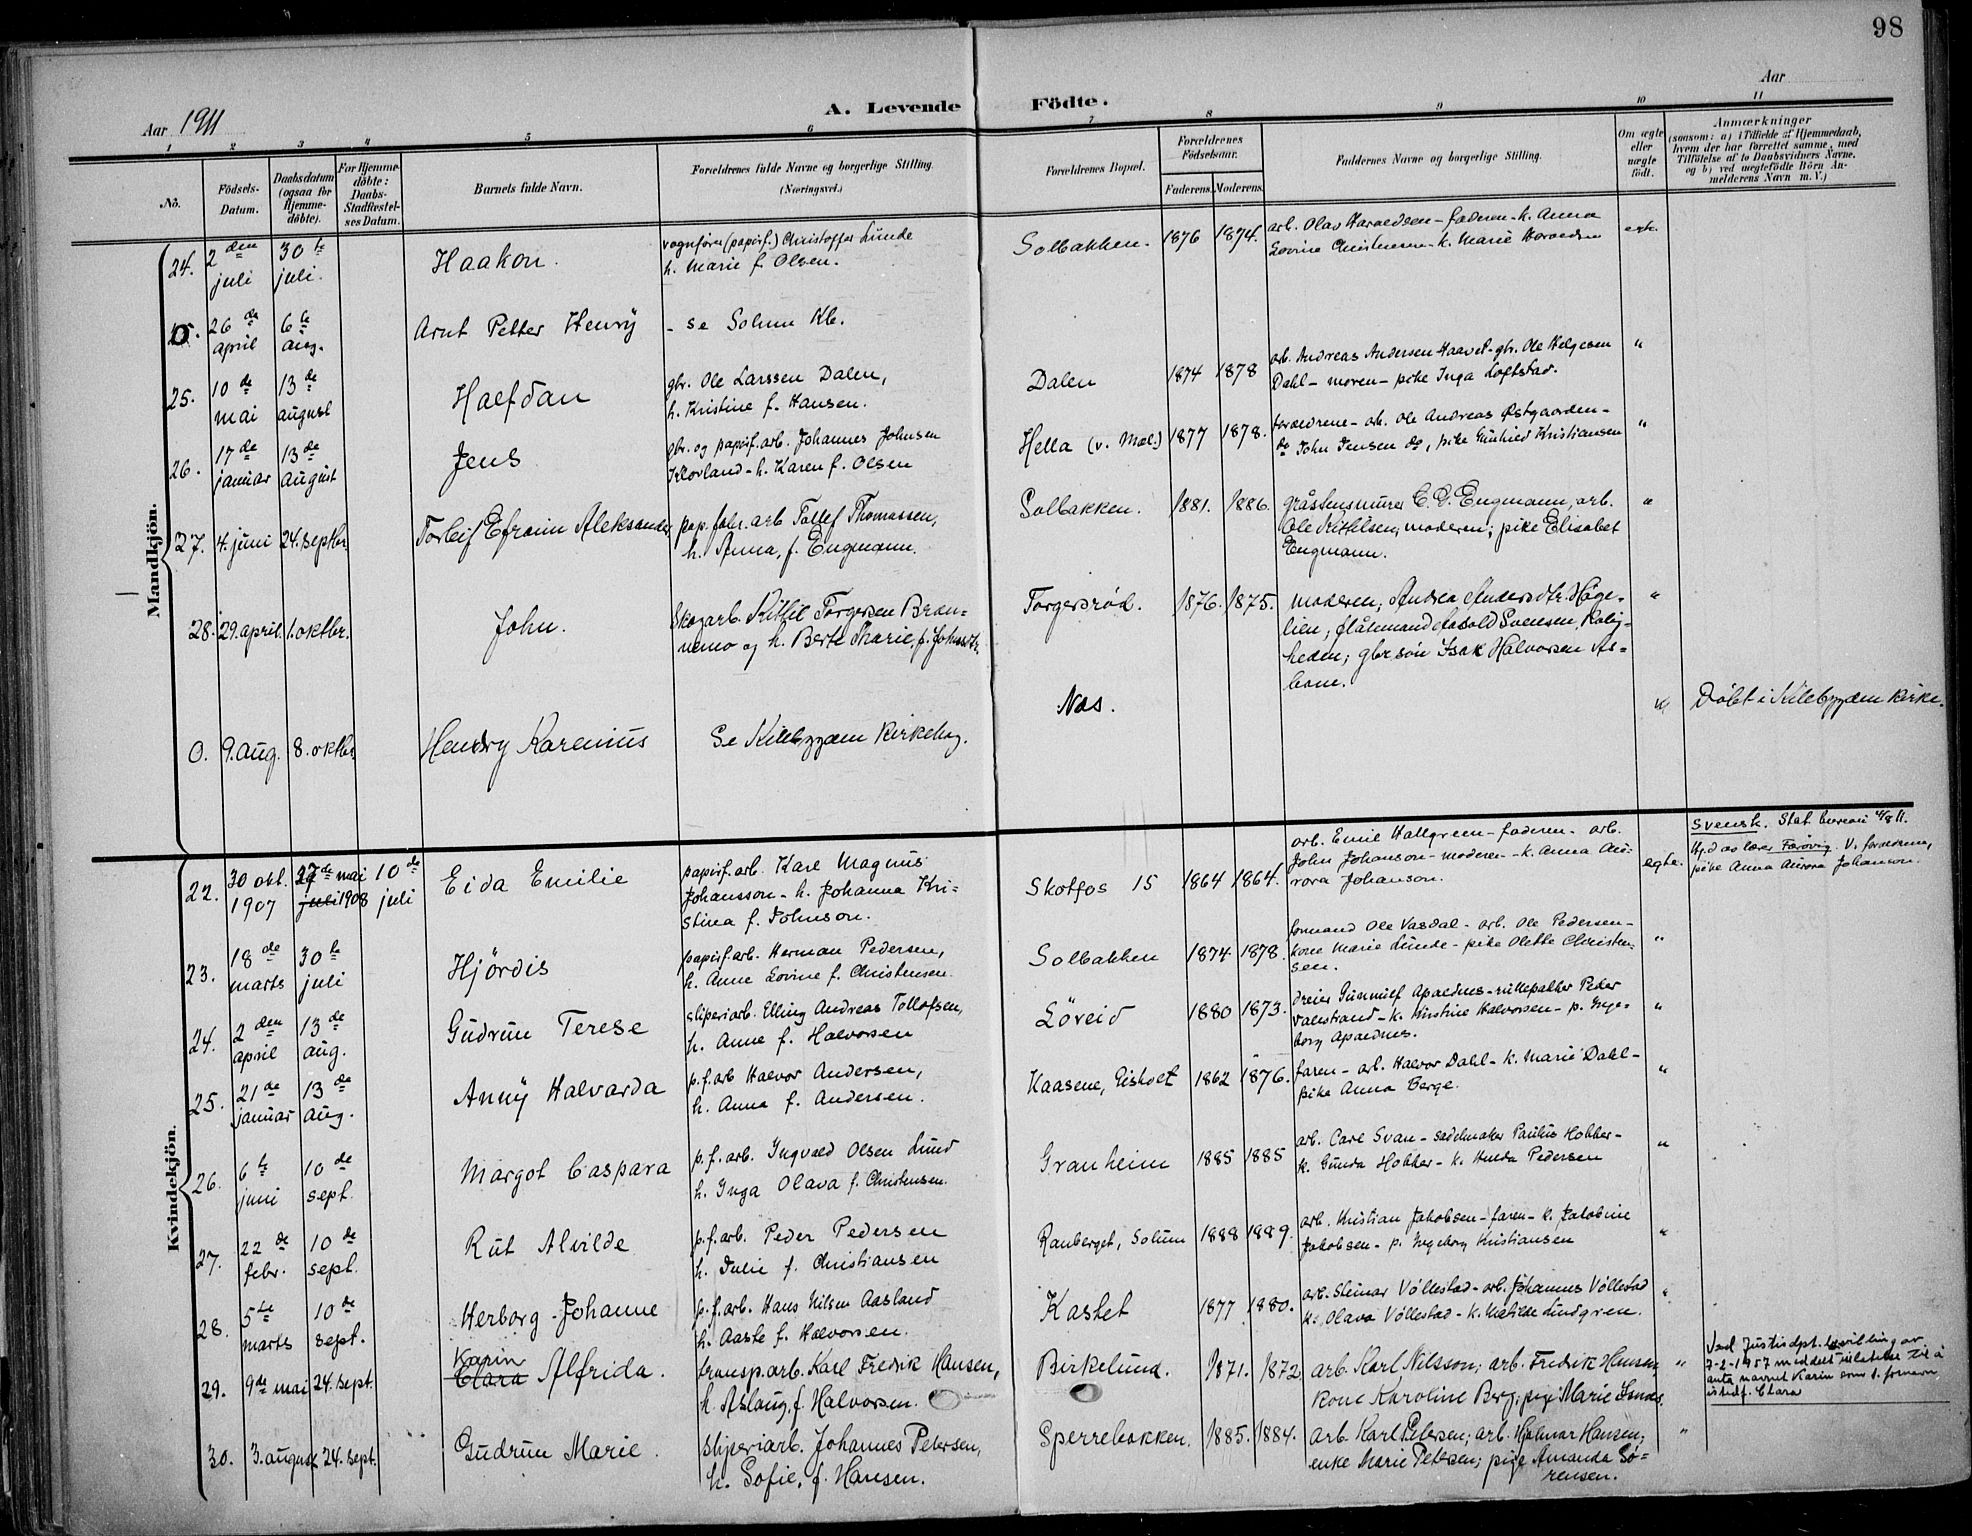 98
Aar 1911
A. Levende Födte.
Aar
1 2 3 4 5 6 7 8 9 10 11
No.
Födsels-
Datum.
Daabsdatum
(ogsaa for
Hjemme-
döbte).
For Hjemme-
döbte:
Daabs-
Stadfæstel-
ses Datum.
Barnets fulde Navn.
Forældrenes fulde Navne og borgerlige Stilling
(Næringsvei.)
Forældrenes Bopæl.
Forældrenes
Födselsaar.
Faderens. Moderens.
Faddernes Navne og borgerlige Stilling.
Om ægte
eller
uægte
födt.
Anmærkninger
(saasom: a) i Tilfælde af Hjemmedaab,
hvem der har forrettet samme, med
Tilföielse af to Daabsvidners Navne,
og b) ved uægtefödte Börn An-
melderens Navn m. V.)
Mandkjön.
24. 2den juli 30te juli. Haakon.
vognfører (papirf.) Christoffer Lunde
h. Marie f. Olsen.
Solbakken. 1876 1874.
arb. Olav Haraldsen – faderen – k. Anna
Lovine Christensen – k. Marie Haraldsen
egte.
0. 26de april 6te aug. Arnt Petter Henrÿ
– se Solum Kb.
25. 10de mai 13de august Halfdan
gbr. Ole Larssen Dalen,
h. Kristine f. Hansen.
Dalen 1874 1878
arb. Andreas Andersen Haavet – gbr. Ole Helgesen
Dahl – moren – pike Inga Loftstad.
"
26. 17de januar 13de august Jens
gbr. og papirf.arb. Johannes Johnsen
Klovland – h. Karen f. Olsen
Hella (v. Mæl.) 1877 1878.
forældrene – arb. Ole Andreas Østgaarden –
do John Jensen do, pike Gunhild Kristiansen
"
27. 4. juni 24. septbr. Torleif Efraim Aleksander
pap. fabr. arb Tollef Thomassen,
h. Anna, f. Engmann.
Solbakken. 1881. 1886.
gråstensmurer C. G. Engmann, arb.
Ole Kittelsen, moderen; pike Elisabet
Engmann.
"
28. 29. april. 1. oktbr. John.
Skogarb. Kittil Torgersen Bræn-
nemo og h. Berte Marie, f. Johnsdtr.
Torgersrød. 1876. 1875.
moderen, Andrea Andersdtr. Håge-
lien; flåtemand Svensen, Rolig-
heden; gbr søn Isak Halvorsen As-
"
0. 9. aug. 8. oktbr. Hendry Karenius
Se Kilebygden Kirkebog.
Nas.
Döbt i Kilebygden Kirke.
Kvindekjön.
22. 30 okt. 1907 27de mai juli 1908 10de juli Eida Emilie
papirf.arb. Karl Magnus
Johansson – h. Johanna Kri-
stina f. Johnson.
Skotfos 15 1864 1864.
arb. Emil Hallgreen – faderen – arb.
John Johanson – moderen – k. Anna Au-
rora Johanson.
egte.
Svensk. Stat. bureau 4/8 11.
Hj.d av lærer Farövig. V. forældrene,
pike Anna Aurora Johanson.
23. 18de marts 30te juli Hjördis
papirf.arb. Herman Pedersen,
h. Anne Lovine f. Christensen.
Solbakken 1874 1878.
formand Ole Vasdal – arb. Ole Pedersen –
kone Marie Lunde – pike Olette Christen-
sen.
"
24. 2den april 13de aug. Gudrun Terese
sliperiarb. Elling Andreas Tollofsen,
h. Anne f. Halvorsen
Löveid 1880 1873.
dreier Gunnulf Apaldnes – rullepakker Peder
Valestrand – k. Kirstine Halvorsen – p. Inge-
borg Apaldnes.
"
25. 21de januar 13de aug. Annÿ Halvarda
p.f.arb Halvor Andersen,
h. Anna f. Andersen.
Kaasene, Eisholt 1862 1876.
faren – arb. Halvor Dahl – k. Marie Dahl –
pike Anna Berge.
"
26. 6te juni 10de sept. Margot Caspara
p.f.arb. Ingvald Olsen Lund
h. Inga Olava f. Christensen.
Granheim 1885 1885
arb. Carl Svan – sadelmaker Paulus Hobber –
k. Gunda Hobber – k. Hulda Pedersen
"
27. 22de febr. 10de sept. Rut Alvilde
p.f.arb. Peder Pedersen
h. Julie f. Christiansen
Rauberget, Solum 1888 1889.
arb. Kristian Jakobsen – faren – k. Jakobine
Jakobsen – p. Ingeborg Kristiansen
"
28. 5te marts 10de sept. Herborg Johanne
p.f.arb. Hans Nilsen Aasland
h. Aaste f. Halvorsen.
Kastet 1877 1880.
arb. Steinar Völlestad – arb. Johannes Völlestad
k. Olava Völlestad – k. Matilde Lindgren.
"
29. 9de mai 24. sept. Karin
Clara Alfrida.
transp.arb. Karl Fredrik Hansen,
h. Aslaug, f. Halvorsen.
Birkelund. 1871. 1872
arb. Karl Nilsson; arb. Fredrik Hansen,
kone Karoline Berg; pige Marie
"
Ved Justisdpt. bevilling av
7-2-1957 meddelt tillatelse til å
anta navnet Karin som 1. fornavn
istedf. Clara
30. 3. august 24. sept. Gudrun Marie.
sliperiarb. Johannes Petersen,
h. Sofie, f. Hansen.
Sperrebakken. 1885. 1884.
arb. Karl Petersen; arb. Hjalmar Hansen;
enke Marie Petersen; pige Amanda Sö-
rensen.
"